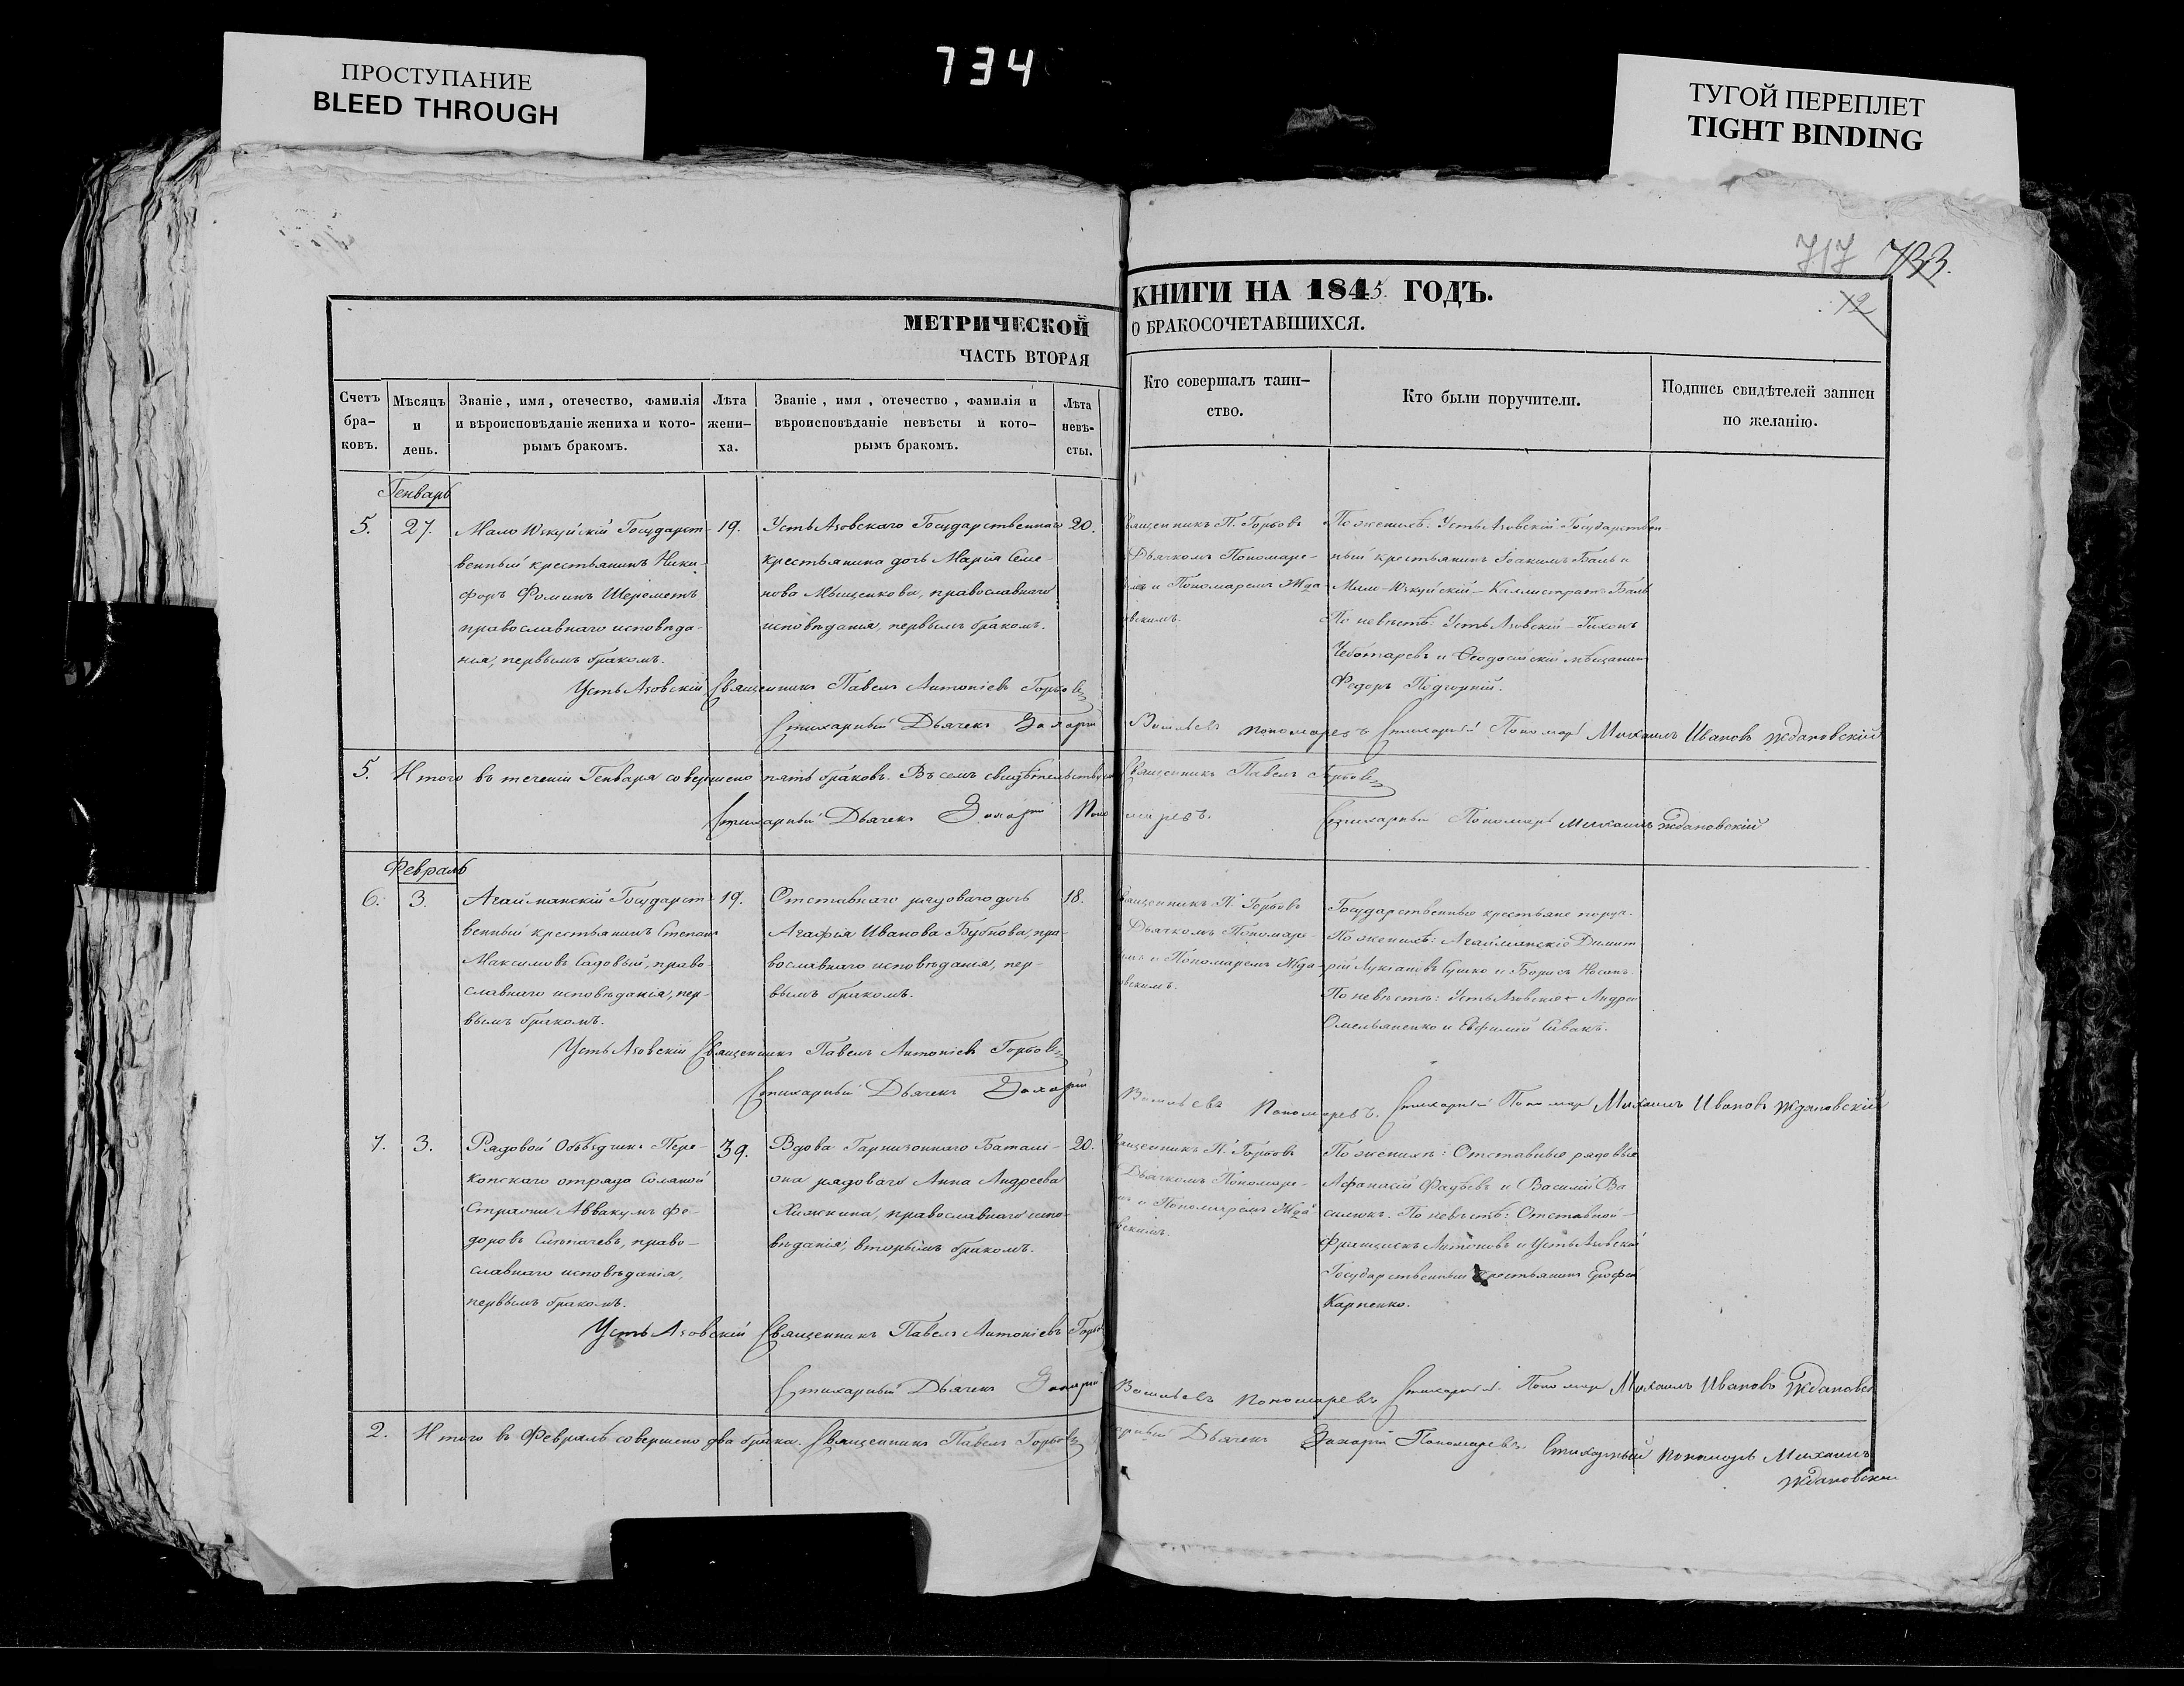 ПРОСТУПАНИЕ
BLEED THROUGH
734
ТУГОЙ ПЕРЕПЛЕТ
TIGHT BINDING
717 733.
12
МЕТРИЧЕСКОЙ
ЧАСТЬ ВТОРАЯ
КНИГИ НА 1845. ГОДЪ.
О БРАКОСОЧЕТАВШИХСЯ.
Счетъ
бра-
ковъ.
Мѣсяцъ
и
день.
Званіе, имя, отечество, фамилія
и вѣроисповѣданіе жениха и кото-
рымъ бракомъ.
Лѣта
жени-
ха.
Званіе, имя, отечество, фамилія и
вѣроисповѣданіе невѣсты и кото-
рымъ бракомъ.
Лѣта
невѣ-
сты.
Кто совершалъ таин-
ство.
Кто были поручители.
Подпись свидѣтелей записи
по желанію.
Генварь
5.
27.
Мало Юскуйскій Государст-
венный крестьянинъ Ники-
форъ Фоминъ Шереметъ
православнаго исповѣда-
нія, первымъ бракомъ.
19.
Усть Азовскаго Государственнаго
крестьянина дочь Марія Семе-
нова Мыщенкова, православнаго
исповѣданія, первымъ бракомъ.
20.
Священникъ П. Горбовъ
Дьячкомъ Пономаре-
и Пономаремъ Жда-
вскимъ.
По женихѣ: Усть Азовскій Государствен-
ный крестьянинъ Іоакимъ Баль и
Мало-Юскуйскій - Каллистратъ Баль
По невѣстѣ: Усть Азовскій - Тихонъ
Чеботаревъ и Ѳеодосійскій мѣщанинъ
Федоръ Подгорный.
Усть Азовскій Священникъ Павелъ Антоніевъ Горбовъ
Стихарный Дьячекъ Захарій Васильевъ Пономаревъ Стихарный Пономарь Михаилъ Ивановъ Ждановскій
5. Итого въ теченіи Генваря совершено пять браковъ. Въ семъ свидѣтельствуемъ Священникъ Павелъ Горбовъ
Стихарный Дьячекъ Захарій Пономаревъ. Стихарный Пономарь Михаилъ Ждановскій
Февраль
6.
3.
Агайманскій Государст-
венный крестьянинъ Степанъ
Максимовъ Садовый, право-
славнаго исповѣданія, пер-
вымъ бракомъ.
19.
Отставнаго рядоваго дочь
Агафія Иванова Бубнова, пра-
вославнаго исповѣданія, пер-
вымъ бракомъ.
18.
Священникъ П. Горбовъ
Дьячкомъ Пономаре-
и Пономаремъ Жда-
овскимъ.
Государственные крестьяне поруч.
По женихѣ: Агайманскіе Димит
рій Лукіановъ Сушко и Борисъ
По невѣстѣ: Усть Азовскіе Андрей
Омельяненко и Евфимій Сивакъ.
Усть Азовскій Священникъ Павелъ Антоніевъ Горбовъ
Стихарный Дьячекъ Захарій Васильевъ Пономаревъ. Стихарный Пономарь Михаилъ Ивановъ Ждановскій
7.
3.
Рядовой Объѣдчикъ Пере-
копскаго отряда Соляной
Стражи Аввакумъ Фе-
доровъ Слѣпачевъ, право-
славнаго исповѣданія,
первымъ бракомъ.
39.
Вдова Гарнизоннаго Баталі-
она рядоваго Анна Андреева
Хижкина, православнаго испо-
вѣданія, вторымъ бракомъ.
20.
Священникъ П. Горбовъ
Дьячкомъ Пономаре-
и Пономаремъ Жда-
вскимъ.
По женихѣ: Отставные рядовые
Афанасій Фадѣевъ и Василій Ва
силюкъ. По невѣстѣ: Отставной
Францискъ Антоновъ и Усть Азовскій
Государственный крестьянинъ Ерофей
Карпенко.
Усть Азовскій Священникъ Павелъ Антоніевъ Горбовъ
Стихарный Дьячекъ Захарій Васильевъ Пономаревъ Стихарный Пономарь Михаилъ Ивановъ Ждановскій
2. Итого въ Февралѣ совершено два брака. Священникъ Павелъ Горбовъ Стихарный Дьячекъ Захарій Пономаревъ. Стихарный пономарь Михаилъ
Ждановскій